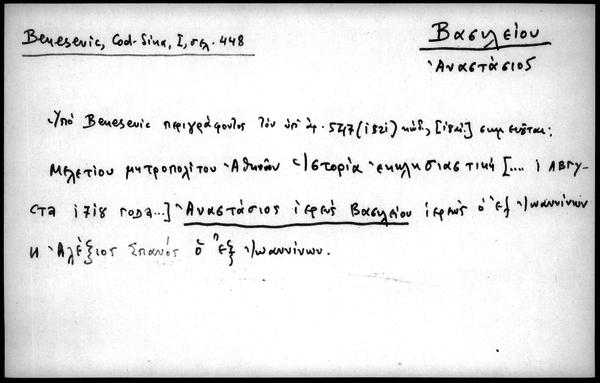 Benesevic, Cod. Sina, I, σελ. 448
Βασιλείου
Ἀναστάσιος
Ὑπὸ Benesevic περιγράφοντος τὸν ὑπ' ἀρ. 547 (1821) κώδ, [1821] σημειοῦται:
Μελετίου μητροπολίτου Ἀθηνῶν Ἱστορία ἐκκλησιαστικὴ [.... 1 АВГУ-
СТА 1718 ГОДА...] Ἀναστάσιος ἱερεὺς Βασιλείου ἱερεὺς ὁ ἐξ Ἰωαννίνων
и Ἀλέξιος Σπανὸς ὁ ἐξ Ἰωαννίνων.